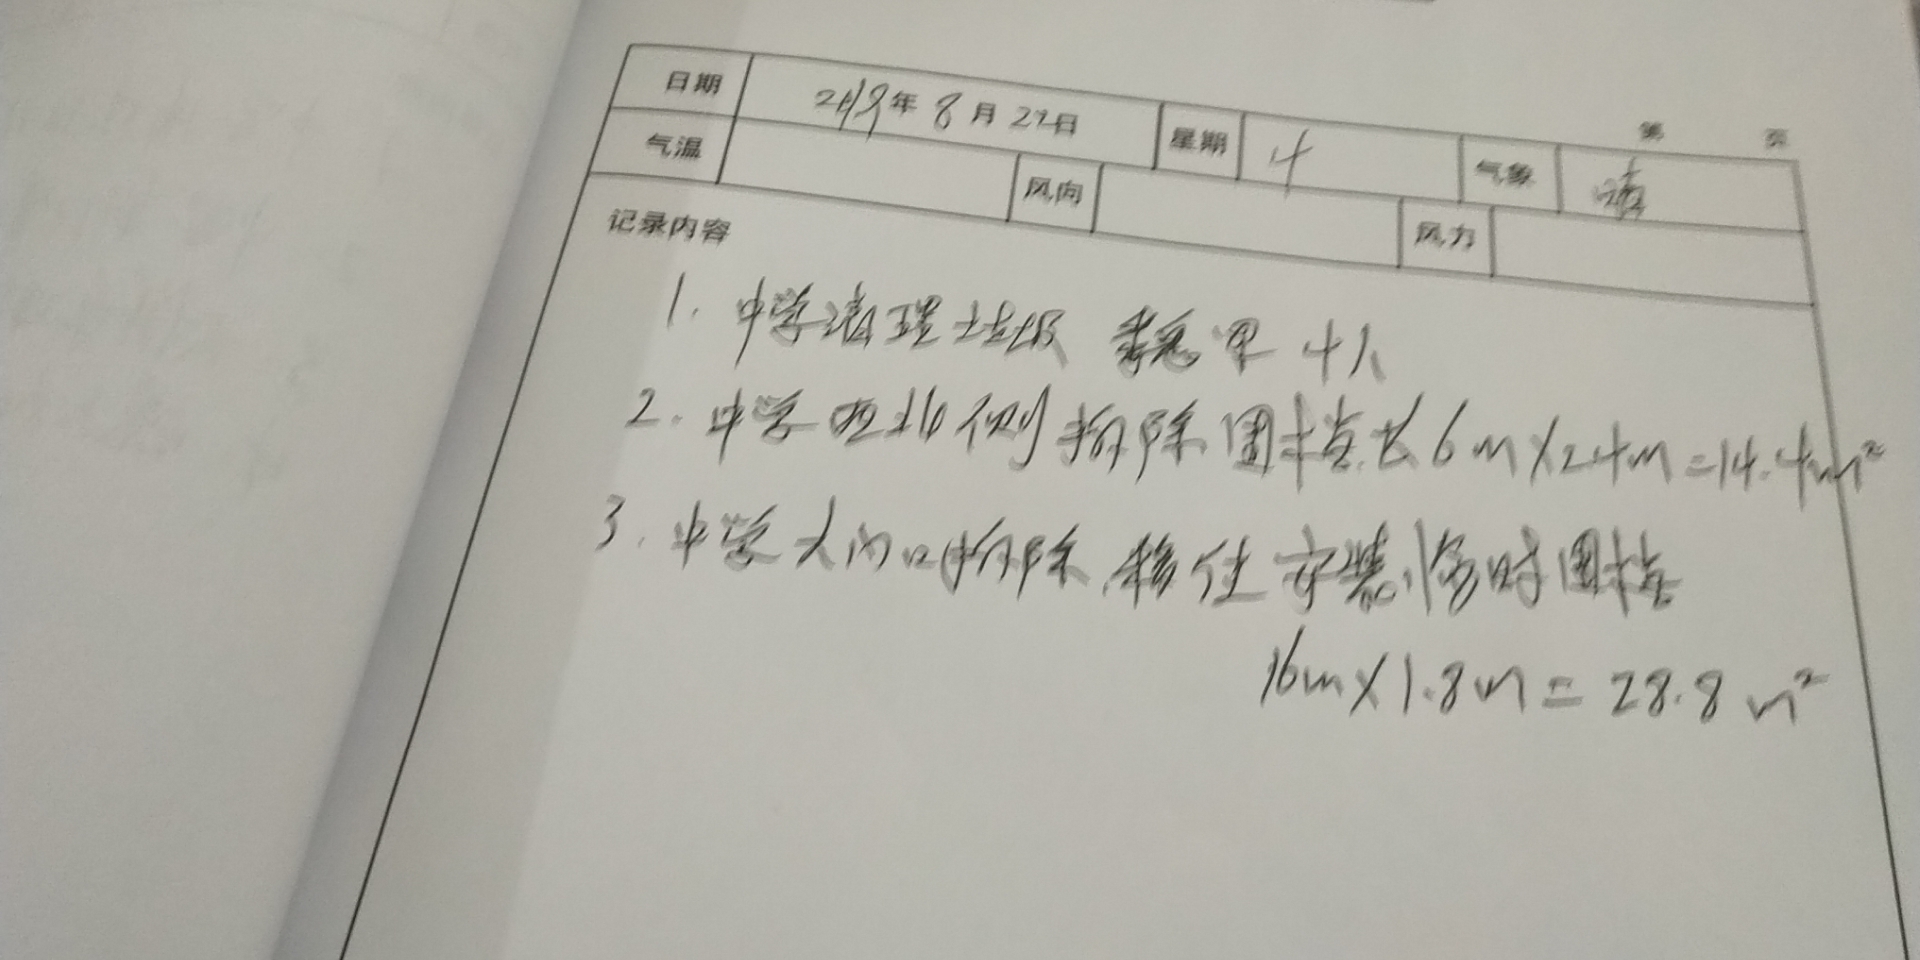 第 页
日期 2019年8月29日 星期 4 气象 晴
气温 风向 风力
记录内容
1. 中学清理垃圾 十人
2. 中学西北侧拆除围挡长6m×24m=14.4m²
3. 中学大门口拆除.移位安装临时围挡
16m×1.8m=28.8m²